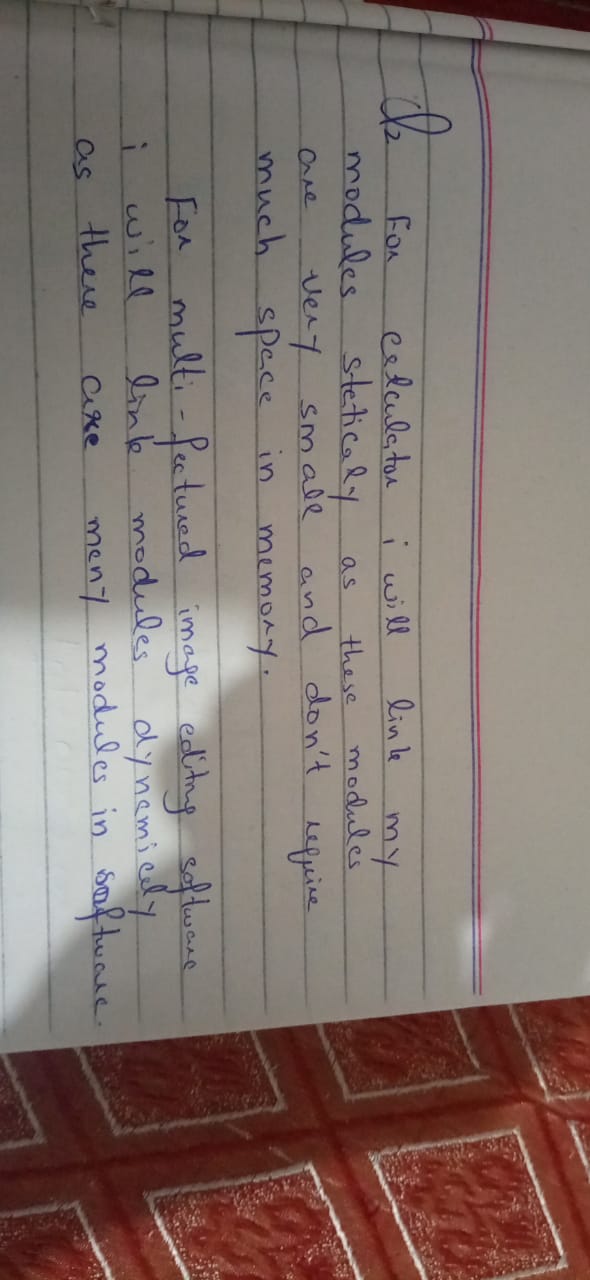 Q2 For calculator i will link my
modules staticaly as these modules
are very small and don't require
much space in memory.
For multi-featured image editing software
i will link modules dynamicaly
as there are many modules in software.